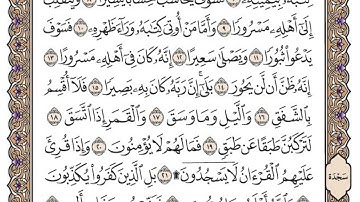 إِلَىٰٓ أَهْلِهِۦ مَسْرُورًا ٩ وَأَمَّا مَنْ أُوتِىَ كِتَٰبَهُۥ وَرَآءَ ظَهْرِهِۦ ١٠ فَسَوْفَ
يَدْعُوا۟ ثُبُورًا ١١ وَيَصْلَىٰ سَعِيرًا ١٢ إِنَّهُۥ كَانَ فِىٓ أَهْلِهِۦ مَسْرُورًا ١٣
إِنَّهُۥ ظَنَّ أَن لَّن يَحُورَ ١٤ بَلَىٰٓ إِنَّ رَبَّهُۥ كَانَ بِهِۦ بَصِيرًا ١٥ فَلَآ أُقْسِمُ
بِٱلشَّفَقِ ١٦ وَٱلَّيْلِ وَمَا وَسَقَ ١٧ وَٱلْقَمَرِ إِذَا ٱتَّسَقَ ١٨
لَتَرْكَبُنَّ طَبَقًا عَن طَبَقٍ ١٩ فَمَا لَهُمْ لَا يُؤْمِنُونَ ٢٠ وَإِذَا قُرِئَ
عَلَيْهِمُ ٱلْقُرْءَانُ لَا يَسْجُدُونَ ۩ ٢١ بَلِ ٱلَّذِينَ كَفَرُوا۟ يُكَذِّبُونَ
سَجْدَة